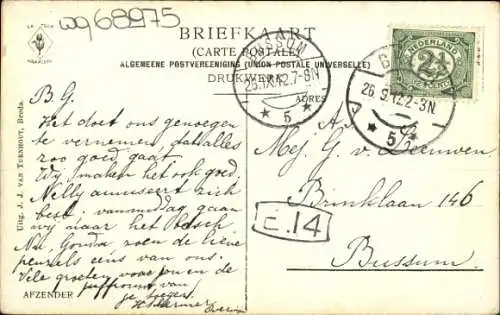 wg68975
BRIEFKAART
(CARTE POSTALE)
ALGEMEENE POSTVEREENIGING (UNION POSTALE UNIVERSELLE)
DRUKWERK
ADRES
NEDERLAND
2½
CENT
BUSSUM
26.IX.12.7-8N
5
26.9.12.2-3N
5
B. G.
Het doet ons genoegen
te vernemen, dat alles
zoo goed gaat.
Wij maken het ook goed.
Nelly amuseert zich
best, vanmiddag gaan
wij naar het bosch.
Nu, Gonda, zoen de lieve
peuzels eens van ons.
Vele groeten voor jou en de
juffrouw van
Aan
Mej. G. v. Leeuwen
Brinklaan 146
Bussum.
c.14
AFZENDER
Uitg. J. J. VAN TURNHOUT, Breda.